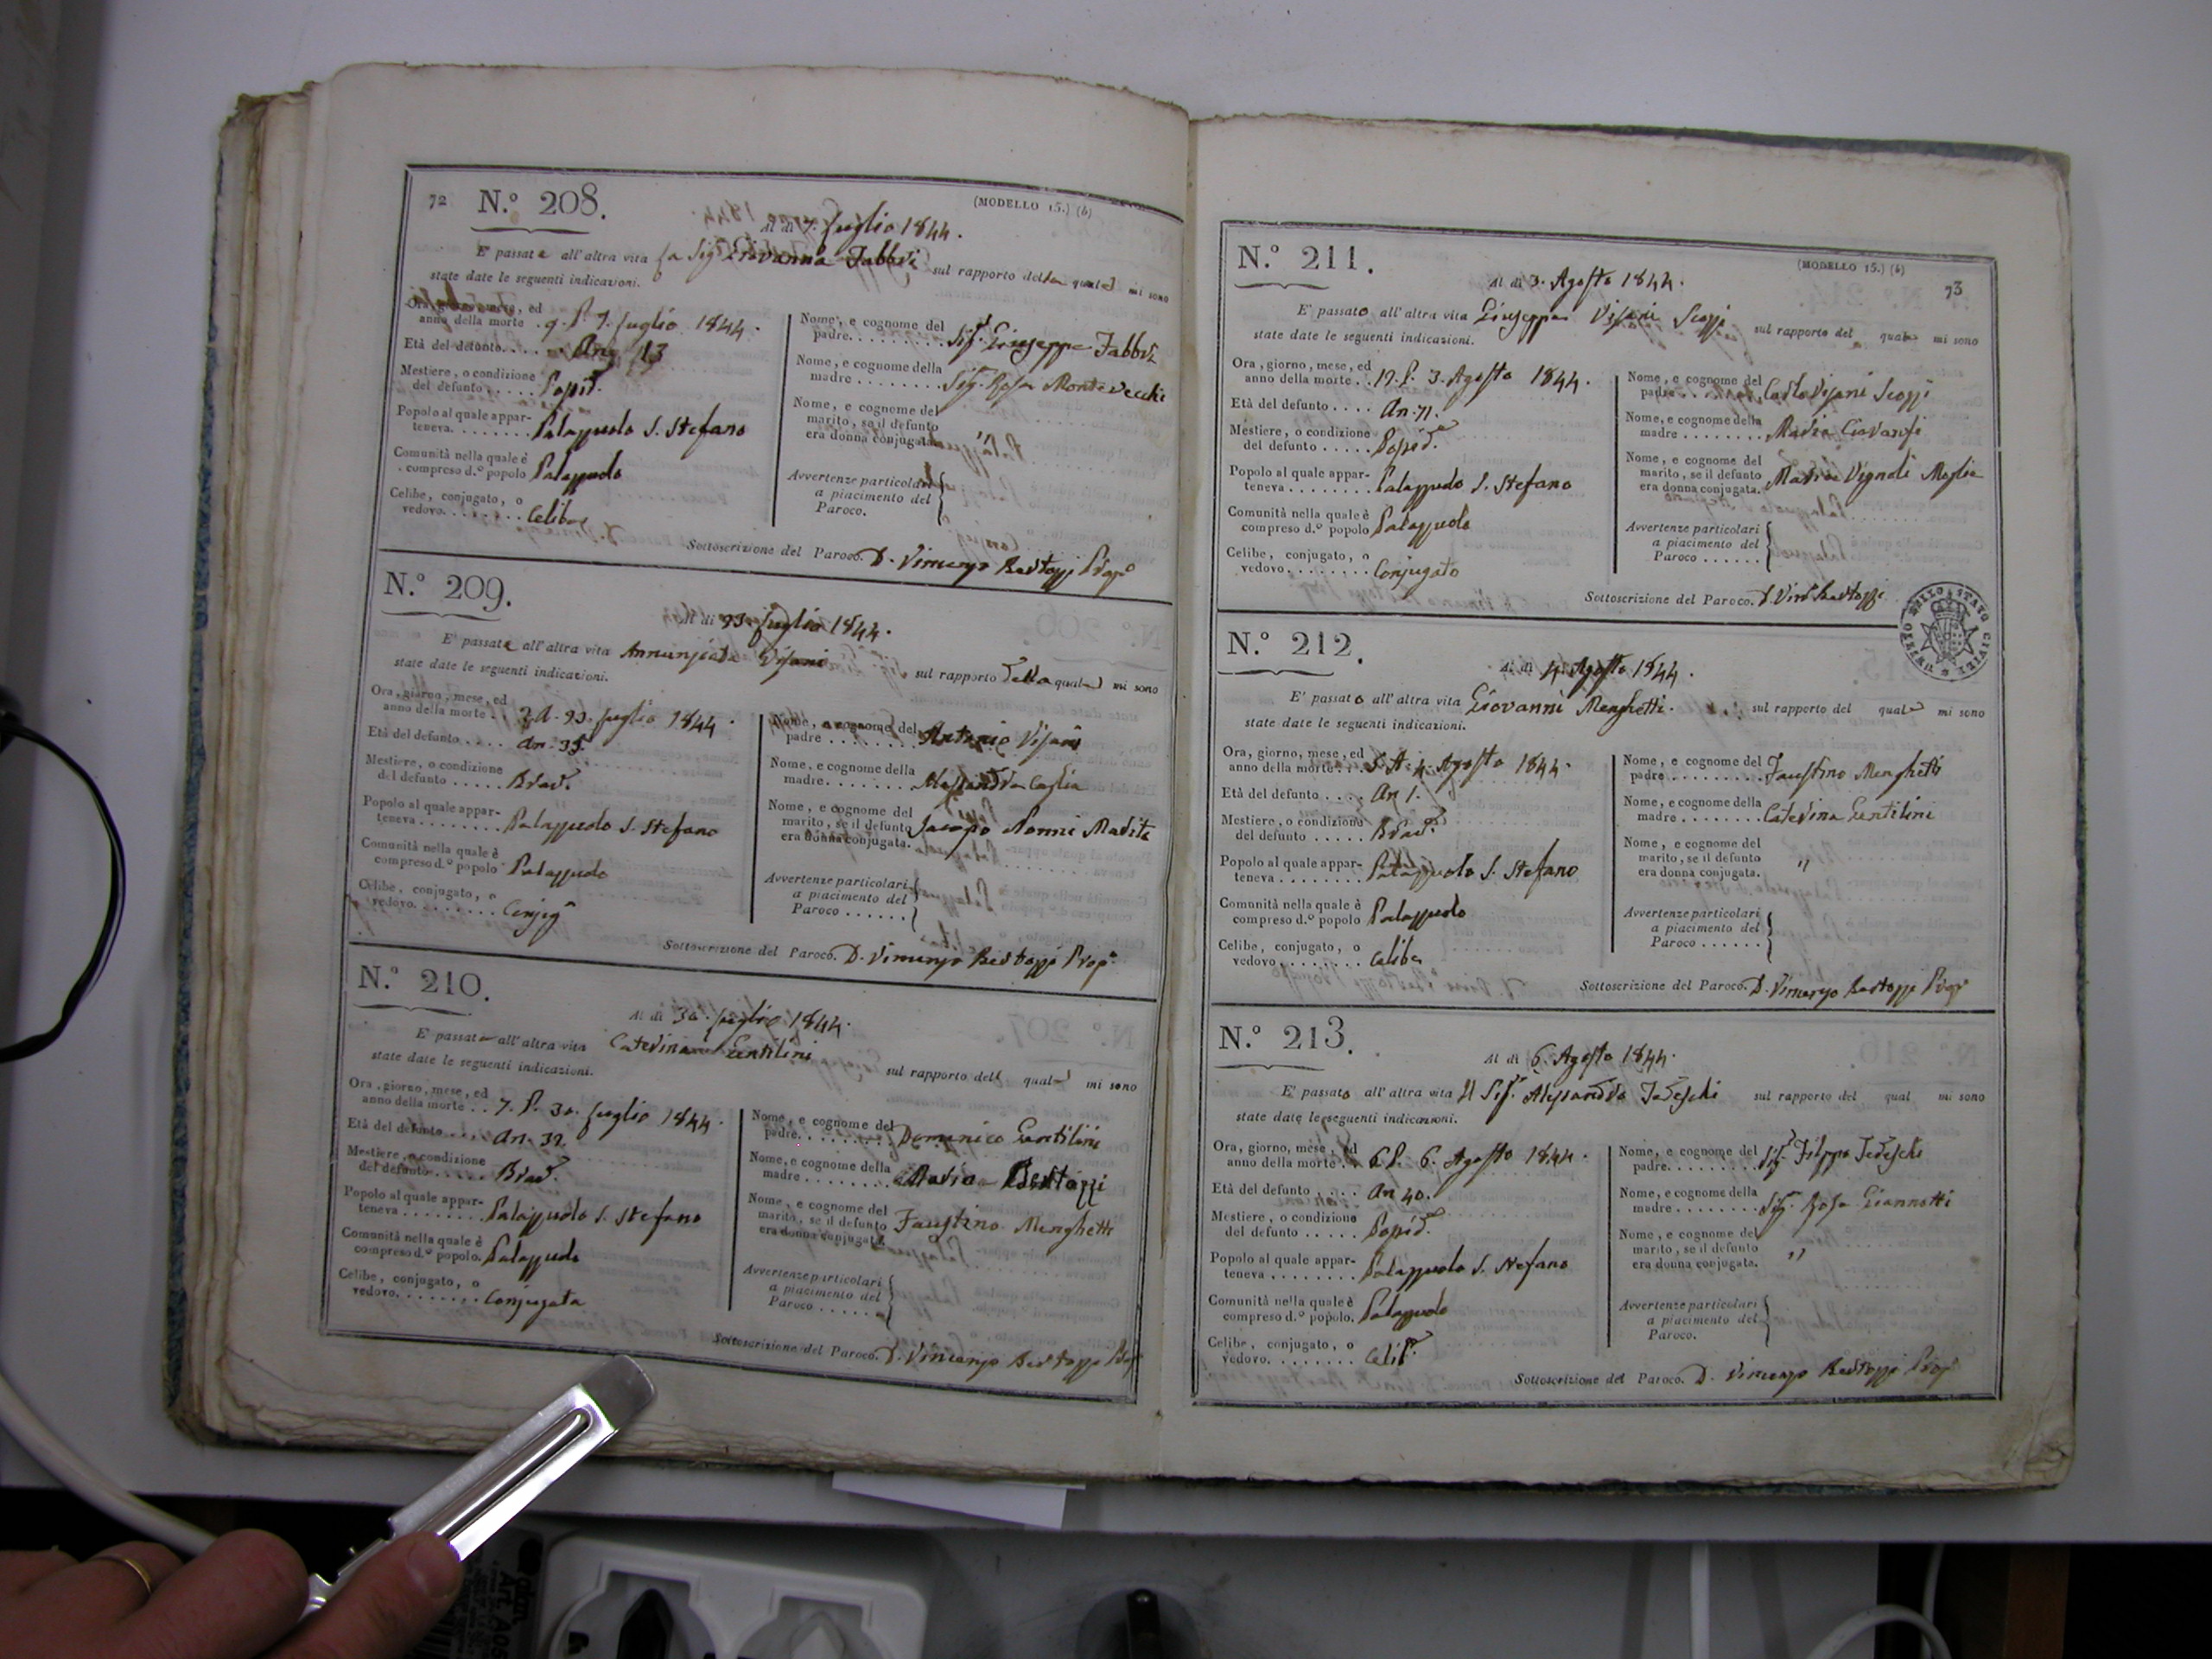 72 N.º 208. (MODELLO 15.) (b)
Al dì 7. Luglio 1844.
E' passata all'altra vita La Sigª Giovanna Fabbri sul rapporto del qual mi sono
state date le seguenti indicazioni.
Ora, giorno, mese, ed
anno della morte . 9. P. 7. Luglio 1844.
Età del defunto.... An. 13
Mestiere, o condizione
del defunto..... Possid.
Popolo al quale appar-
teneva........ Palazzuolo S. Stefano
Comunità nella quale è
compreso d.º popolo Palazzuolo
Celibe, conjugato, o
vedovo........ Celibe
Nome, e cognome del
padre......... Sig. Giuseppe Fabbri
Nome, e cognome della
madre ........ Sig. Rosa Montevecchi
Nome, e cognome del
marito, se il defunto
era donna conjugata.
Avvertenze particolari
a piacimento del
Paroco.
Sottoscrizione del Paroco. D. Vincenzo Bertozzi Propº
N.º 209.
Al dì 23 Luglio 1844.
E' passata all'altra vita Annunziata Visani sul rapporto della qual mi sono
state date le seguenti indicazioni.
Ora, giorno, mese, ed
anno della morte . 2 A. 23. Luglio 1844.
Età del defunto..... An. 35.
Mestiere, o condizione
del defunto ..... Brac.
Popolo al quale appar-
teneva........ Palazzuolo S. Stefano
Comunità nella quale è
compreso d.º popolo Palazzuolo
Celibe, conjugato, o
vedovo........ Conjug
Nome, e cognome del
padre ........ Antonio Visani
Nome, e cognome della
madre........ Alessandra
Nome, e cognome del
marito, se il defunto
era donna conjugata. Jacopo Nonni Marito
Avvertenze particolari
a piacimento del
Paroco ......
Sottoscrizione del Paroco. D. Vincenzo Bertozzi Prop.
N.º 210.
Al dì 30. Luglio 1844.
E' passata all'altra vita Caterina Gentilini sul rapporto del qual mi sono
state date le seguenti indicazioni.
Ora, giorno, mese, ed
anno della morte .. 7. P. 30. Luglio 1844.
Età del defunto..... An. 32
Mestiere, o condizione
del defunto...... Brac.
Popolo al quale appar-
teneva........ Palazzuolo S. Stefano
Comunità nella quale è
compreso d.º popolo. Palazzuolo
Celibe, conjugato, o
vedovo........ Conjugata
Nome, e cognome del
padre......... Domenico Gentilini
Nome, e cognome della
madre ........ Maria Bertozzi
Nome, e cognome del
marito, se il defunto
era donna conjugata. Faustino Menghetti
Avvertenze particolari
a piacimento del
Paroco ......
Sottoscrizione del Paroco. D. Vincenzo Bertozzi Prop
N.º 211. (MODELLO 15.) (b) 73
Al dì 3. Agosto 1844.
E' passato all'altra vita Giuseppe Visani Scozzi sul rapporto del qual mi sono
state date le seguenti indicazioni.
Ora, giorno, mese, ed
anno della morte .. P. 3. Agosto 1844.
Età del defunto .... An. 71.
Mestiere, o condizione
del defunto ..... Possid.
Popolo al quale appar-
teneva........ Palazzuolo S. Stefano
Comunità nella quale è
compreso d.º popolo Palazzuolo
Celibe, conjugato, o
vedovo........ Conjugato
Nome, e cognome del
padre........ Carlo Visani Scozzi
Nome, e cognome della
madre ........ Maria
Nome, e cognome del
marito, se il defunto
era donna conjugata. Maria Vignoli Moglie
Avvertenze particolari
a piacimento del
Paroco ......
Sottoscrizione del Paroco. D. Vinc. Bertozzi
UFFIZIO DELLO STATO CIVILE
N.º 212.
Al dì 4. Agosto 1844.
E' passato all'altra vita Giovanni Menghetti. sul rapporto del qual mi sono
state date le seguenti indicazioni.
Ora, giorno, mese, ed
anno della morte... 5 A. 4. Agosto 1844.
Età del defunto .... An 1.
Mestiere, o condizione
del defunto ..... Brac.
Popolo al quale appar-
teneva........ Palazzuolo S. Stefano
Comunità nella quale è
compreso d.º popolo Palazzuolo
Celibe, conjugato, o
vedovo........ Celibe
Nome, e cognome del
padre......... Faustino Menghetti
Nome, e cognome della
madre ........ Caterina Gentilini
Nome, e cognome del
marito, se il defunto "
era donna conjugata.
Avvertenze particolari
a piacimento del
Paroco ......
Sottoscrizione del Paroco. D. Vincenzo Bertozzi Prop
N.º 213.
Al dì 6. Agosto 1844.
E' passato all'altra vita Il Sigr Alessandro Tedeschi sul rapporto del qual mi sono
state date le seguenti indicazioni.
Ora, giorno, mese, ed
anno della morte .. 6 P. 6. Agosto 1844.
Età del defunto .... An 40.
Mestiere, o condizione
del defunto ..... Possid.
Popolo al quale appar-
teneva........ Palazzuolo S. Stefano
Comunità nella quale è
compreso d.º popolo. Palazzuolo
Celibe, conjugato, o
vedovo........ Celib.
Nome, e cognome del
padre........ Sigr Filippo Tedeschi
Nome, e cognome della
madre ........ Sig. Rosa Giannotti
Nome, e cognome del
marito, se il defunto "
era donna conjugata.
Avvertenze particolari
a piacimento del
Paroco.
Sottoscrizione del Paroco. D. Vincenzo Bertozzi Prop